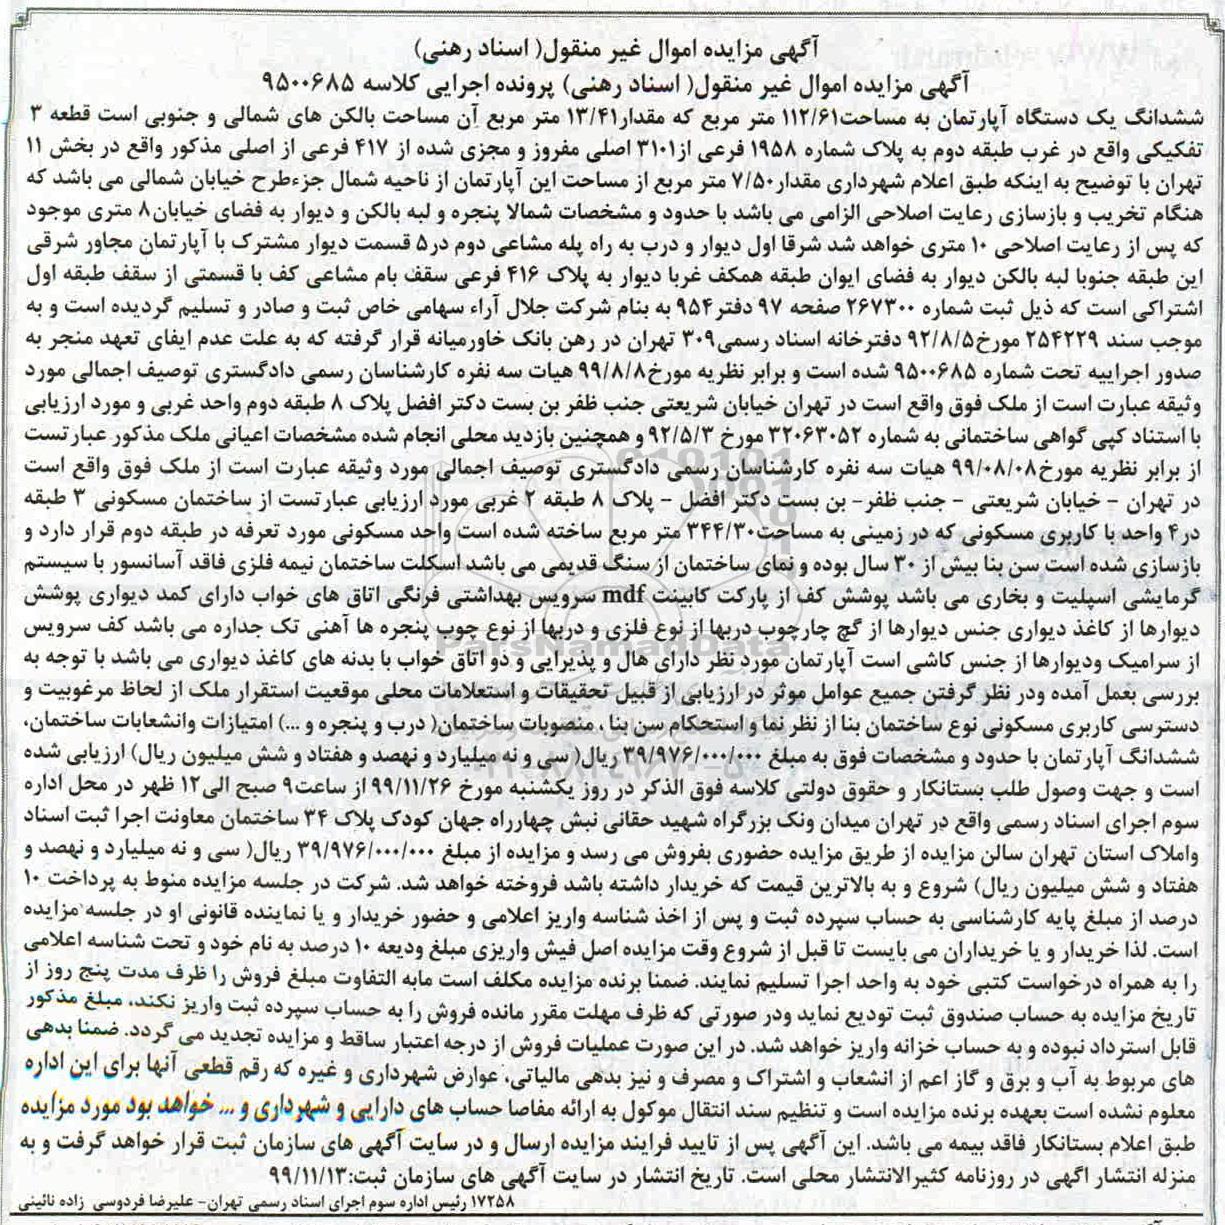 آگهی مزایده اموال غیر منقول( اسناد رهنی)
آگهی مزایده اموال غیر منقول( اسناد رهنی) پرونده اجرایی کلاسه ۹۵۰۰۶۸۵
ششدانگ یک دستگاه آپارتمان به مساحت۱۱۲/۶۱ متر مربع که مقدار۱۳/۴۱ متر مربع آن مساحت بالکن های شمالی و جنوبی است قطعه ۳
تفکیکی واقع در غرب طبقه دوم به پلاک شماره ۱۹۵۸ فرعی از۳۱۰۱ اصلی مفروز و مجزی شده از ۴۱۷ فرعی از اصلی مذکور واقع در بخش ۱۱
تهران با توضیح به اینکه طبق اعلام شهرداری مقدار۷/۵۰ متر مربع از مساحت این آپارتمان از ناحیه شمال جزءطرح خیابان شمالی می باشد که
هنگام تخریب و بازسازی رعایت اصلاحی الزامی می باشد با حدود و مشخصات شمالا پنجره و لبه بالکن و دیوار به فضای خیابان۸ متری موجود
که پس از رعایت اصلاحی ۱۰ متری خواهد شد شرقا اول دیوار و درب به راه پله مشاعی دوم در۵ قسمت دیوار مشترک با آپارتمان مجاور شرقی
این طبقه جنوبا لبه بالکن دیوار به فضای ایوان طبقه همکف غربا دیوار به پلاک ۴۱۶ فرعی سقف بام مشاعی کف با قسمتی از سقف طبقه اول
اشتراکی است که ذیل ثبت شماره ۲۶۷۳۰۰ صفحه ۹۷ دفتر۹۵۴ به بنام شرکت جلال آراء سهامی خاص ثبت و صادر و تسلیم گردیده است و به
موجب سند ۲۵۴۲۲۹ مورخ۹۲/۸/۵ دفترخانه اسناد رسمی۳۰۹ تهران در رهن بانک خاورمیانه قرار گرفته که به علت عدم ایفای تعهد منجر به
صدور اجراییه تحت شماره ۹۵۰۰۶۸۵ شده است و برابر نظریه مورخ۹۹/۸/۸ هیات سه نفره کارشناسان رسمی دادگستری توصیف اجمالی مورد
وثیقه عبارت است از ملک فوق واقع است در تهران خیابان شریعتی جنب ظفر بن بست دکتر افضل پلاک ۸ طبقه دوم واحد غربی و مورد ارزیابی
با استناد کپی گواهی ساختمانی به شماره ۳۲۰۶۳۰۵۲ مورخ ۹۲/۵/۳ و همچنین بازدید محلی انجام شده مشخصات اعیانی ملک مذکور عبارتست
از برابر نظریه مورخ۹۹/۰۸/۰۸ هیات سه نفره کارشناسان رسمی دادگستری توصیف اجمالی مورد وثیقه عبارت است از ملک فوق واقع است
در تهران – خیابان شریعتی – جنب ظفر– بن بست دکتر افضل – پلاک ۸ طبقه ۲ غربی مورد ارزیابی عبارتست از ساختمان مسکونی ۳ طبقه
در۴ واحد با کاربری مسکونی که در زمینی به مساحت۳۴۴/۳۰ متر مربع ساخته شده است واحد مسکونی مورد تعرفه در طبقه دوم قرار دارد و
بازسازی شده است سن بنا بیش از ۳۰ سال بوده و نمای ساختمان از سنگ قدیمی می باشد اسکلت ساختمان نیمه فلزی فاقد آسانسور با سیستم
گرمایشی اسپلیت و بخاری می باشد پوشش کف از پارکت کابینت mdf سرویس بهداشتی فرنگی اتاق های خواب دارای کمد دیواری پوشش
دیوارها از کاغذ دیواری جنس دیوارها از گچ چارچوب دربها از نوع فلزی و دربها از نوع چوب پنجره ها آهنی تک جداره می باشد کف سرویس
از سرامیک ودیوارها از جنس کاشی است آپارتمان مورد نظر دارای هال و پذیرایی و دو اتاق خواب با بدنه های کاغذ دیواری می باشد با توجه به
بررسی بعمل آمده ودر نظر گرفتن جمیع عوامل موثر در ارزیابی از قبیل تحقیقات و استعلامات محلی موقعیت استقرار ملک از لحاظ مرغوبیت و
دسترسی کاربری مسکونی نوع ساختمان بنا از نظر نما و استحکام سن بنا ، منصوبات ساختمان( درب و پنجره و ...) امتیازات وانشعابات ساختمان،
ششدانگ آپارتمان با حدود و مشخصات فوق به مبلغ ۳۹/۹۷۶/۰۰۰/۰۰۰ ریال( سی و نه میلیارد و نهصد و هفتاد و شش میلیون ریال) ارزیابی شده
است و جهت وصول طلب بستانکار و حقوق دولتی کلاسه فوق الذکر در روز یکشنبه مورخ ۹۹/۱۱/۲۶ از ساعت۹ صبح الی۱۲ ظهر در محل اداره
سوم اجرای اسناد رسمی واقع در تهران میدان ونک بزرگراه شهید حقانی نبش چهارراه جهان کودک پلاک ۳۴ ساختمان معاونت اجرا ثبت اسناد
واملاک استان تهران سالن مزایده از طریق مزایده حضوری بفروش می رسد و مزایده از مبلغ ۳۹/۹۷۶/۰۰۰/۰۰۰ ریال( سی و نه میلیارد و نهصد و
هفتاد و شش میلیون ریال) شروع و به بالاترین قیمت که خریدار داشته باشد فروخته خواهد شد. شرکت در جلسه مزایده منوط به پرداخت ۱۰
درصد از مبلغ پایه کارشناسی به حساب سپرده ثبت و پس از اخذ شناسه واریز اعلامی و حضور خریدار و یا نماینده قانونی او در جلسه مزایده
است. لذا خریدار و یا خریداران می بایست تا قبل از شروع وقت مزایده اصل فیش واریزی مبلغ ودیعه ۱۰ درصد به نام خود و تحت شناسه اعلامی
را به همراه درخواست کتبی خود به واحد اجرا تسلیم نمایند. ضمنا برنده مزایده مکلف است مابه التفاوت مبلغ فروش را ظرف مدت پنج روز از
تاریخ مزایده به حساب صندوق ثبت تودیع نماید ودر صورتی که ظرف مهلت مقرر مانده فروش را به حساب سپرده ثبت واریز نکند، مبلغ مذکور
قابل استرداد نبوده و به حساب خزانه واریز خواهد شد. در این صورت عملیات فروش از درجه اعتبار ساقط و مزایده تجدید می گردد. ضمنا بدهی
های مربوط به آب و برق و گاز اعم از انشعاب و اشتراک و مصرف و نیز بدهی مالیاتی، عوارض شهرداری و غیره که رقم قطعی آنها برای این اداره
معلوم نشده است بعهده برنده مزایده است و تنظیم سند انتقال موکول به ارائه مفاصا حساب های دارایی و شهرداری و ... خواهد بود مورد مزایده
طبق اعلام بستانکار فاقد بیمه می باشد. این آگهی پس از تایید فرایند مزایده ارسال و در سایت آگهی های سازمان ثبت قرار خواهد گرفت و به
منزله انتشار اگهی در روزنامه کثیرالانتشار محلی است. تاریخ انتشار در سایت آگهی های سازمان ثبت:۹۹/۱۱/۱۳
۱۷۲۵۸ رئیس اداره سوم اجرای اسناد رسمی تهران– علیرضا فردوسی زاده نائینی
ParsNamadData